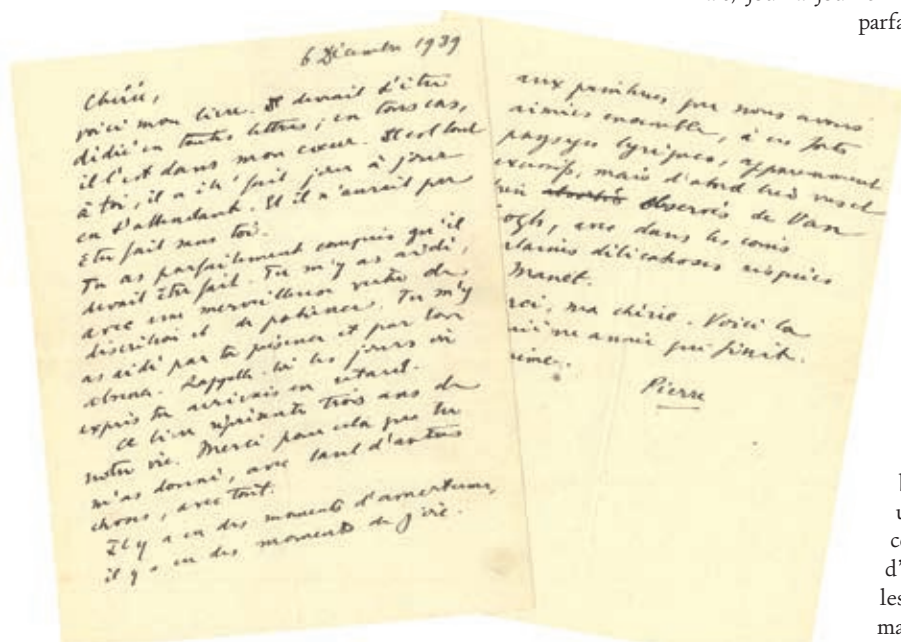 parfa
6 Décembre 1939
Chérie,
voici mon livre. Il devrait t'être
dédié en toutes lettres ; en tous cas,
il l'est dans mon cœur. Il est tout
à toi, il a été fait jour à jour
en t'attendant. Et il n'aurait pas
été fait sans toi.
Tu as parfaitement compris qu'il
devait être fait. Tu m'y as aidé,
avec une merveilleuse vertu de
discrétion et de patience. Tu m'y
as aidé par ta présence et par ton
absence. Rappelle-toi les jours où
exprès tu arrivais en retard.
Ce livre représente trois ans de
notre vie. Merci pour cela que tu
m'as donné, avec tant d'autres
choses, avec tout.
Il y a eu des moments d'amertume,
il y a eu des moments de joie.
aux peintures que nous avons
aimées ensemble, à ces forts
paysages lyriques, apparemment
excessifs, mais d'abord très vus et
observés de Van
ogh, avec dans les coins
délicatesses
Manet.
rci, ma chérie. Voici la
ième année qui finit.
Pierre
u
d'
les
ma